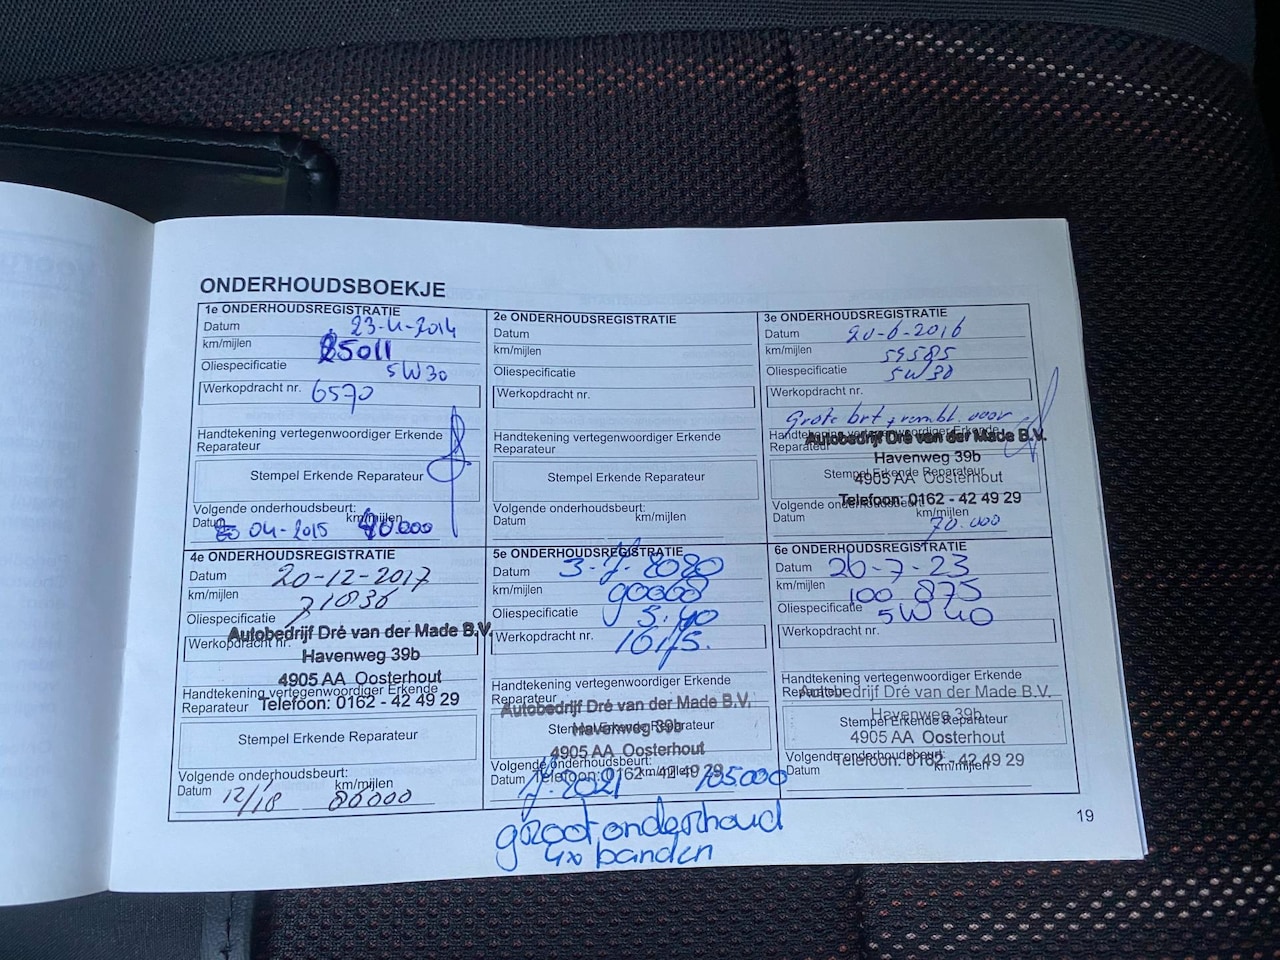 ONDERHOUDSBOEKJE
1e ONDERHOUDSREGISTRATIE
Datum 23-4-2014
km/mijlen 25011
Oliespecificatie 5W30
Werkopdracht nr. 6570
Handtekening vertegenwoordiger Erkende
Reparateur
Stempel Erkende Reparateur
Volgende onderhoudsbeurt:
Datum 04-2015 km/mijlen 40.000
2e ONDERHOUDSREGISTRATIE
Datum
km/mijlen
Oliespecificatie
Werkopdracht nr.
Handtekening vertegenwoordiger Erkende
Reparateur
Stempel Erkende Reparateur
Volgende onderhoudsbeurt:
Datum km/mijlen
3e ONDERHOUDSREGISTRATIE
Datum 20-6-2016
km/mijlen 59585
Oliespecificatie 5W30
Werkopdracht nr.
Grote brt + rembl. voor
Handtekening vertegenwoordiger Erkende
Autobedrijf Dré van der Made B.V.
Havenweg 39b
Stempel Erkende Reparateur
4905 AA Oosterhout
Telefoon: 0162 - 42 49 29
Volgende onderhoudsbeurt:
Datum km/mijlen
70.000
4e ONDERHOUDSREGISTRATIE
Datum 20-12-2017
km/mijlen 71036
Oliespecificatie
Autobedrijf Dré van der Made B.V.
Werkopdracht nr.
Havenweg 39b
4905 AA Oosterhout
Handtekening vertegenwoordiger Erkende
Reparateur Telefoon: 0162 - 42 49 29
Stempel Erkende Reparateur
Volgende onderhoudsbeurt:
Datum 12/18 km/mijlen 86000
5e ONDERHOUDSREGISTRATIE
Datum 3-7-2020
km/mijlen 90008
Oliespecificatie 5.40
Werkopdracht nr. 16175.
Handtekening vertegenwoordiger Erkende
Reparateur
Autobedrijf Dré van der Made B.V.
Stempel Erkende Reparateur
Havenweg 39b
4905 AA Oosterhout
Volgende onderhoudsbeurt:
Telefoon: 0162 - 42 49 29
Datum 7-2021 km/mijlen 105000
groot onderhoud
4x banden
6e ONDERHOUDSREGISTRATIE
Datum 26-7-23
km/mijlen 100 875
Oliespecificatie 5W40
Werkopdracht nr.
Handtekening vertegenwoordiger Erkende
Reparateur
Autobedrijf Dré van der Made B.V.
Havenweg 39b
Stempel Erkende Reparateur
4905 AA Oosterhout
Volgende onderhoudsbeurt:
Telefoon: 0162 - 42 49 29
Datum km/mijlen
19